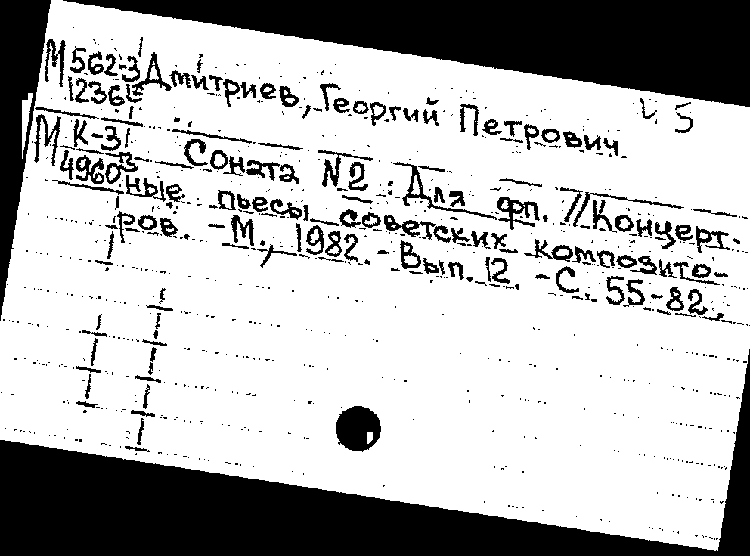 М 562-3 Дмитриев, Георгий Петрович
1236
М К-3 Соната №2 : Для фп. //Концерт-
4960 ные пьесы советских композито-
ров. - М., 1982. - Вып. 12. - С. 55-82.